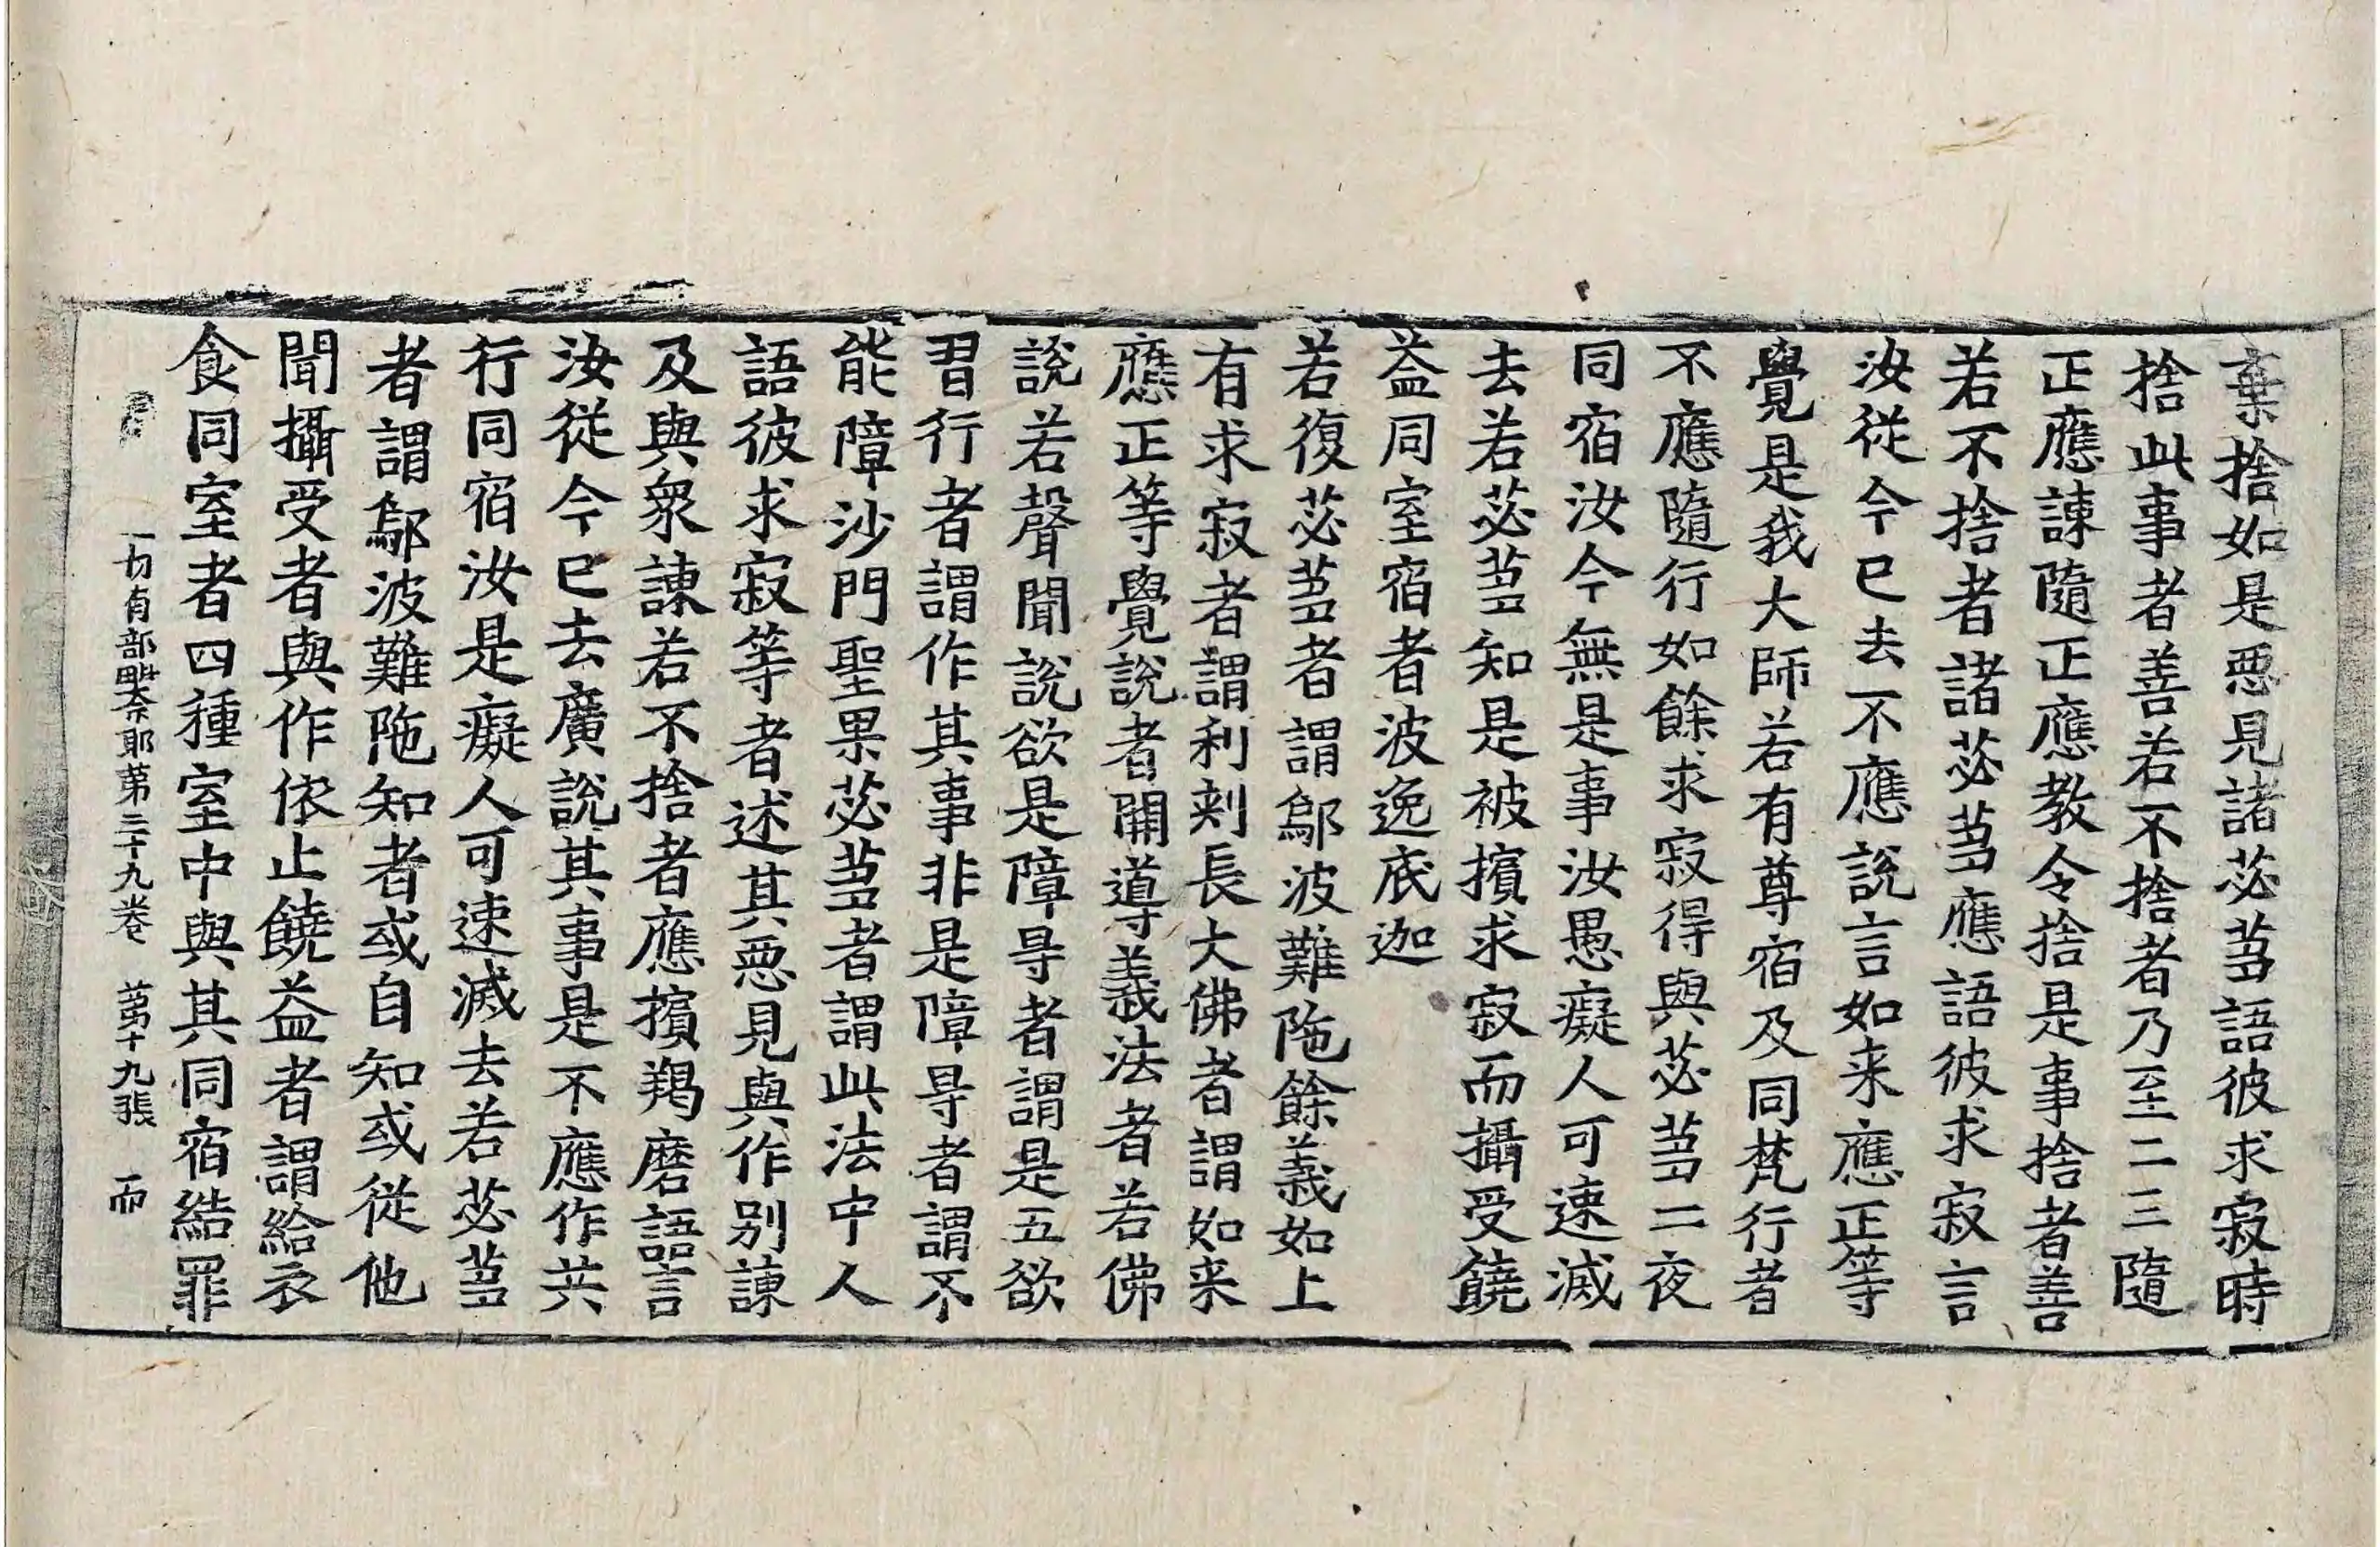 棄捨如是惡見諸苾芻語彼求寂時
捨此事者善若不捨者乃至二三隨
正應諫隨正應教令捨是事捨者善
若不捨者諸苾芻應語彼求寂言
汝從今已去不應說言如来應正等
覺是我大師若有尊宿及同梵行者
不應隨行如餘求寂得與苾芻二夜
同宿汝今無是事汝愚癡人可速滅
去若苾芻知是被擯求寂而攝受饒
益同室宿者波逸底迦
若復苾芻者謂鄔波難陁餘義如上
有求寂者謂利刾長大佛者謂如来
應正等覺說者開導義法者若佛
說若聲聞說欲是障㝵者謂是五欲
習行者謂作其事非是障㝵者謂不
能障沙門聖果苾芻者謂此法中人
語彼求寂等者述其惡見與作别諫
及與衆諫若不捨者應擯羯磨語言
汝從今已去廣說其事是不應作共
行同宿汝是癡人可速滅去若苾芻
者謂鄔波難陁知者或自知或從他
聞攝受者與作依止饒益者謂給衣
食同室者四種室中與其同宿結罪
一切有部毗奈耶第三十九卷 第十九張 而